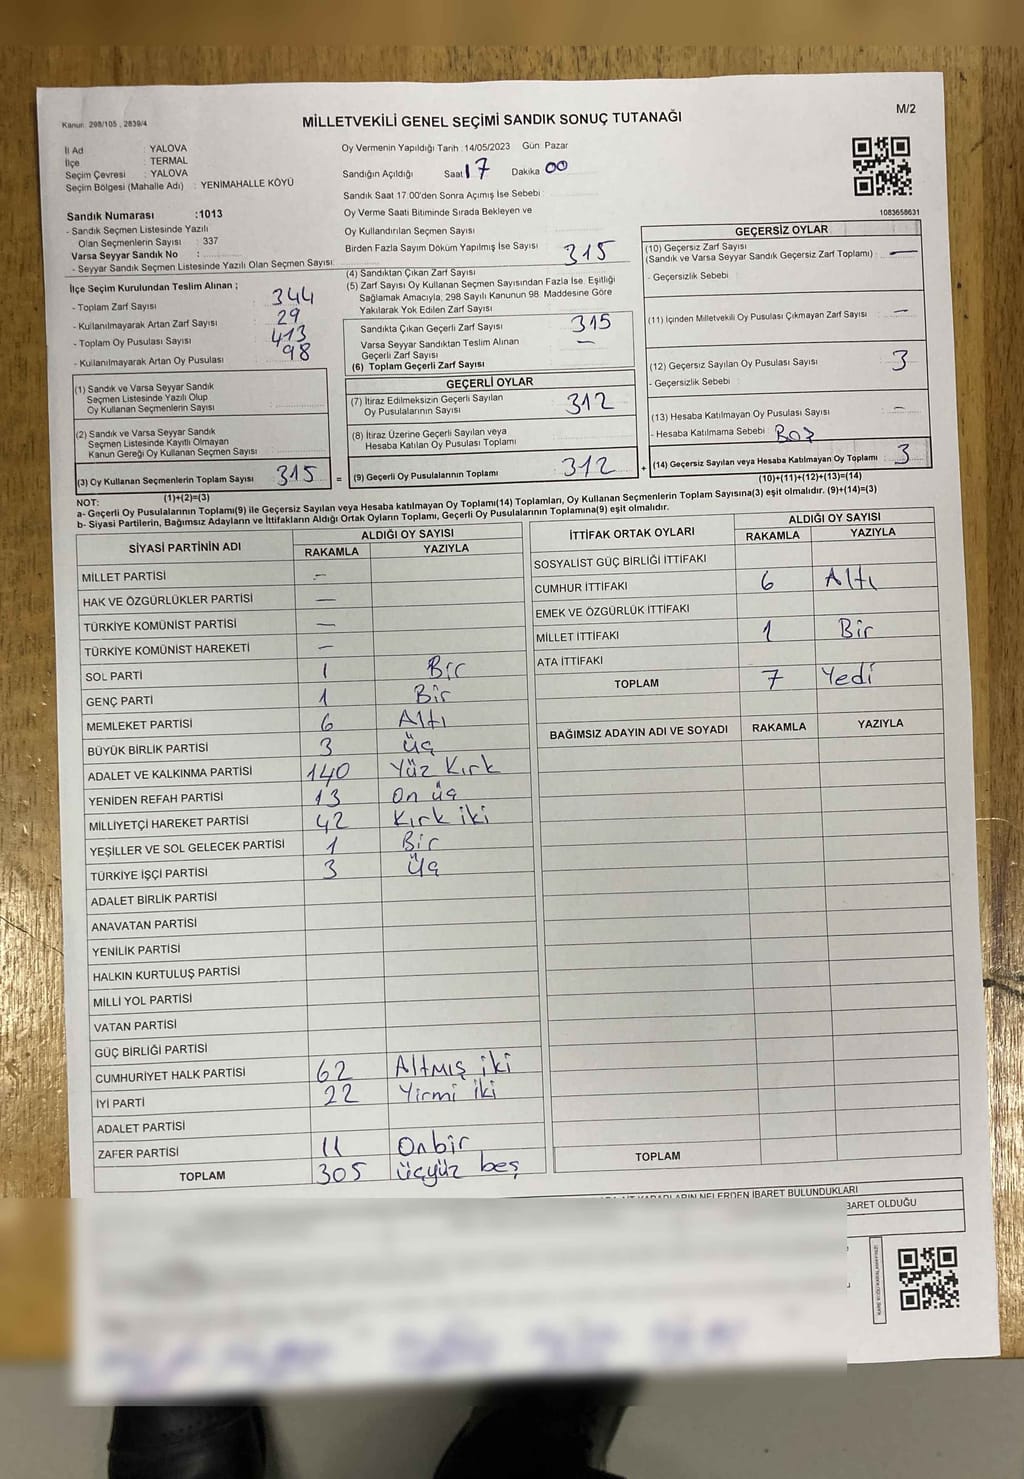 Kanun: 298/105 , 2839/4
MİLLETVEKİLİ GENEL SEÇİMİ SANDIK SONUÇ TUTANAĞI
M/2
İl Adı : YALOVA
İlçe : TERMAL
Seçim Çevresi : YALOVA
Seçim Bölgesi (Mahalle Adı) : YENİMAHALLE KÖYÜ
Sandık Numarası :1013
- Sandık Seçmen Listesinde Yazılı
Olan Seçmenlerin Sayısı : 337
Varsa Seyyar Sandık No :
- Seyyar Sandık Seçmen Listesinde Yazılı Olan Seçmen Sayısı:
İlçe Seçim Kurulundan Teslim Alınan ;
- Toplam Zarf Sayısı 344
- Kullanılmayarak Artan Zarf Sayısı 29
- Toplam Oy Pusulası Sayısı 413
- Kullanılmayarak Artan Oy Pusulası 98
(1) Sandık ve Varsa Seyyar Sandık
Seçmen Listesinde Yazılı Olup
Oy Kullanan Seçmenlerin Sayısı :
(2) Sandık ve Varsa Seyyar Sandık
Seçmen Listesinde Kayıtlı Olmayan
Kanun Gereği Oy Kullanan Seçmen Sayısı :
(3) Oy Kullanan Seçmenlerin Toplam Sayısı 315
(1)+(2)=(3)
Oy Vermenin Yapıldığı Tarih :14/05/2023 Gün: Pazar
Sandığın Açıldığı Saat 17 Dakika 00
Sandık Saat 17:00'den Sonra Açımış İse Sebebi :
Oy Verme Saati Bitiminde Sırada Bekleyen ve
Oy Kullandırılan Seçmen Sayısı :
Birden Fazla Sayım Döküm Yapılmış İse Sayısı :
(4) Sandıktan Çıkan Zarf Sayısı 315
(5) Zarf Sayısı Oy Kullanan Seçmen Sayısından Fazla İse, Eşitliği
Sağlamak Amacıyla, 298 Sayılı Kanunun 98. Maddesine Göre
Yakılarak Yok Edilen Zarf Sayısı :
Sandıkta Çıkan Geçerli Zarf Sayısı 315
Varsa Seyyar Sandıktan Teslim Alınan
Geçerli Zarf Sayısı —
(6) Toplam Geçerli Zarf Sayısı
GEÇERLİ OYLAR
(7) İtiraz Edilmeksizin Geçerli Sayılan
Oy Pusulalarının Sayısı 312
(8) İtiraz Üzerine Geçerli Sayılan veya
Hesaba Katılan Oy Pusulası Toplamı
= (9) Geçerli Oy Pusulalarının Toplamı 312 +
1083658631
GEÇERSİZ OYLAR
(10) Geçersiz Zarf Sayısı
(Sandık ve Varsa Seyyar Sandık Geçersiz Zarf Toplamı) : —
- Geçersizlik Sebebi :
(11) İçinden Milletvekili Oy Pusulası Çıkmayan Zarf Sayısı —
(12) Geçersiz Sayılan Oy Pusulası Sayısı 3
- Geçersizlik Sebebi :
(13) Hesaba Katılmayan Oy Pusulası Sayısı —
- Hesaba Katılmama Sebebi :
(14) Geçersiz Sayılan veya Hesaba Katılmayan Oy Toplamı : 3
(10)+(11)+(12)+(13)=(14)
NOT:
a- Geçerli Oy Pusulalarının Toplamı(9) ile Geçersiz Sayılan veya Hesaba katılmayan Oy Toplamı(14) Toplamları, Oy Kullanan Seçmenlerin Toplam Sayısına(3) eşit olmalıdır. (9)+(14)=(3)
b- Siyasi Partilerin, Bağımsız Adayların ve İttifakların Aldığı Ortak Oyların Toplamı, Geçerli Oy Pusulalarının Toplamına(9) eşit olmalıdır.
SİYASİ PARTİNİN ADI ALDIĞI OY SAYISI
RAKAMLA YAZIYLA
MİLLET PARTİSİ —
HAK VE ÖZGÜRLÜKLER PARTİSİ —
TÜRKİYE KOMÜNİST PARTİSİ —
TÜRKİYE KOMÜNİST HAREKETİ —
SOL PARTİ 1 Bir
GENÇ PARTİ 1 Bir
MEMLEKET PARTİSİ 6 Altı
BÜYÜK BİRLİK PARTİSİ 3 üç
ADALET VE KALKINMA PARTİSİ 140 Yüz Kırk
YENİDEN REFAH PARTİSİ 13 On üç
MİLLİYETÇİ HAREKET PARTİSİ 42 Kırk iki
YEŞİLLER VE SOL GELECEK PARTİSİ 1 Bir
TÜRKİYE İŞÇİ PARTİSİ 3 Üç
ADALET BİRLİK PARTİSİ
ANAVATAN PARTİSİ
YENİLİK PARTİSİ
HALKIN KURTULUŞ PARTİSİ
MİLLİ YOL PARTİSİ
VATAN PARTİSİ
GÜÇ BİRLİĞİ PARTİSİ
CUMHURİYET HALK PARTİSİ 62 Altmış iki
İYİ PARTİ 22 Yirmi iki
ADALET PARTİSİ
ZAFER PARTİSİ 11 Onbir
TOPLAM 305 üçyüz beş
İTTİFAK ORTAK OYLARI ALDIĞI OY SAYISI
RAKAMLA YAZIYLA
SOSYALİST GÜÇ BİRLİĞİ İTTİFAKI
CUMHUR İTTİFAKI 6 Altı
EMEK VE ÖZGÜRLÜK İTTİFAKI
MİLLET İTTİFAKI 1 Bir
ATA İTTİFAKI
TOPLAM 7 Yedi
BAĞIMSIZ ADAYIN ADI VE SOYADI RAKAMLA YAZIYLA
TOPLAM
NELERDEN İBARET BULUNDUKLARI
BARET OLDUĞU